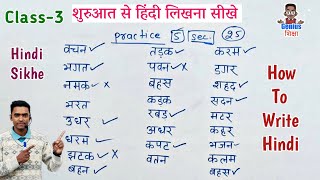 Class-3 शुरुआत से हिंदी लिखना सीखे
Genius
शिक्षा
Hindi
Sikhe
practice 5 sec. 25
वचन ✓
भगत ✓
नमक ✓ x
भरत
उधर ✓
धरम ✓
झटक ✓ x
बहन ✓
तड़क ✓
पवन ✓ x
बहस
कड़क
रबड़ ✓
अधर
कपट ✓
वतन
करम ✓
डगर
शहद ✓
सदन ✓
मटर
कहर
भजन ✓
कलम
बहस ✓
How
To
Write
Hindi